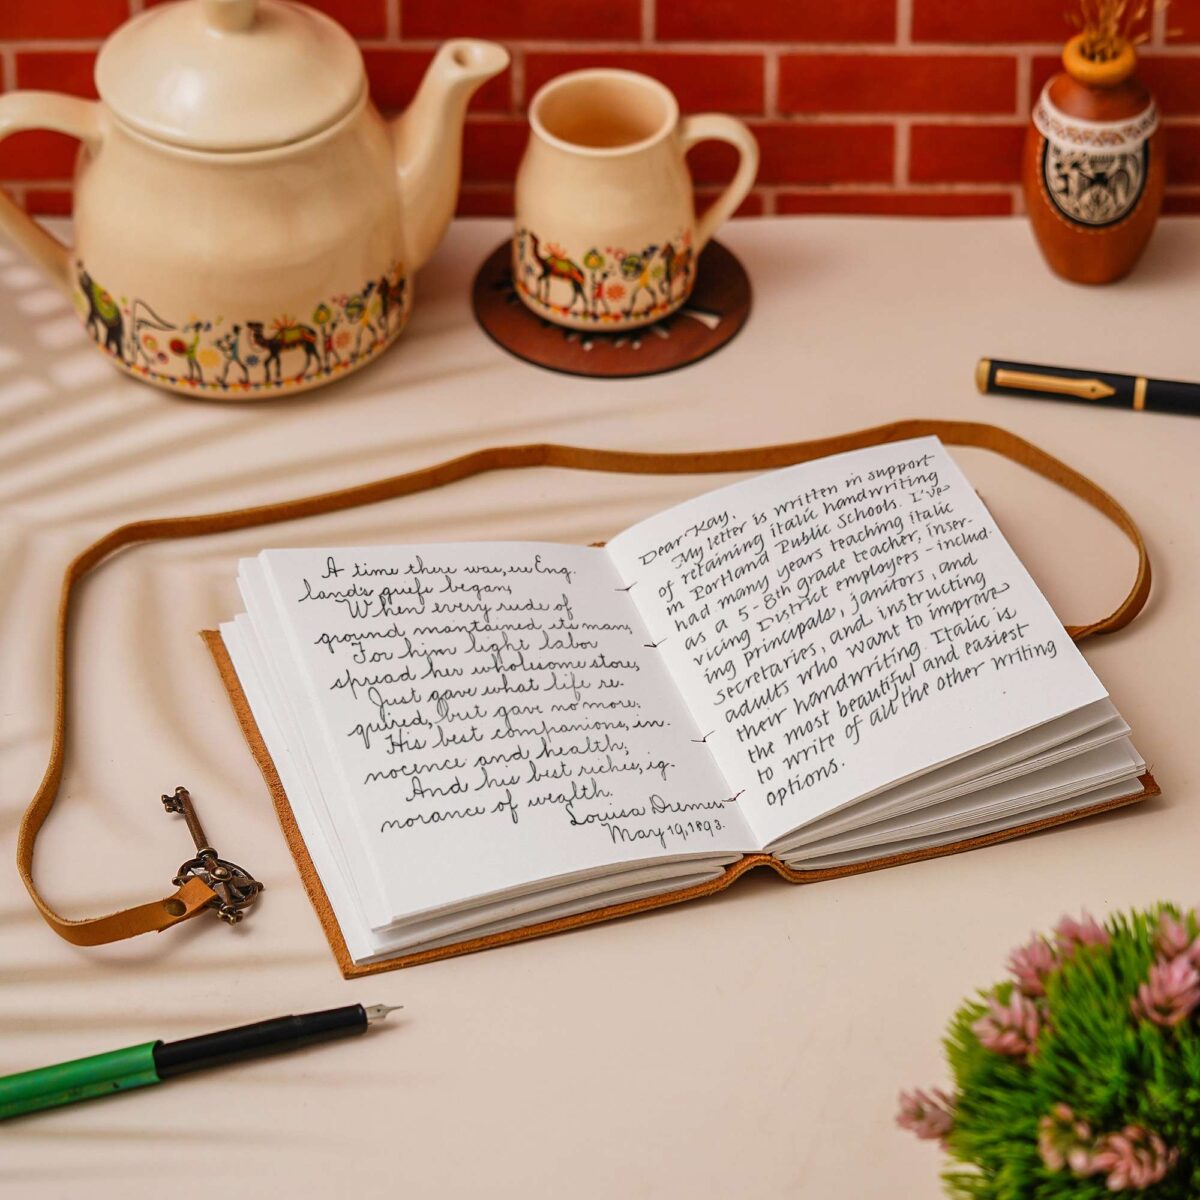 A time there was, ere Eng-
land's griefs began,
When every rude of
ground mantained its man,
For him light labor
spread her wholesome store,
Just gave what life re-
quired, but gave no more;
His best companions, in-
nocence and health;
And his best riches, ig-
norance of wealth.
Louisa
May 19, 1893.
Dear Kay,
My letter is written in support
of retaining italic handwriting
in Portland Public Schools. I've
had many years teaching italic
as a 5-8th grade teacher, inser-
vicing District employees - includ-
ing principals, janitors, and
secretaries, and instructing
adults who want to improve
their handwriting. Italic is
the most beautiful and easiest
to write of all the other writing
options.